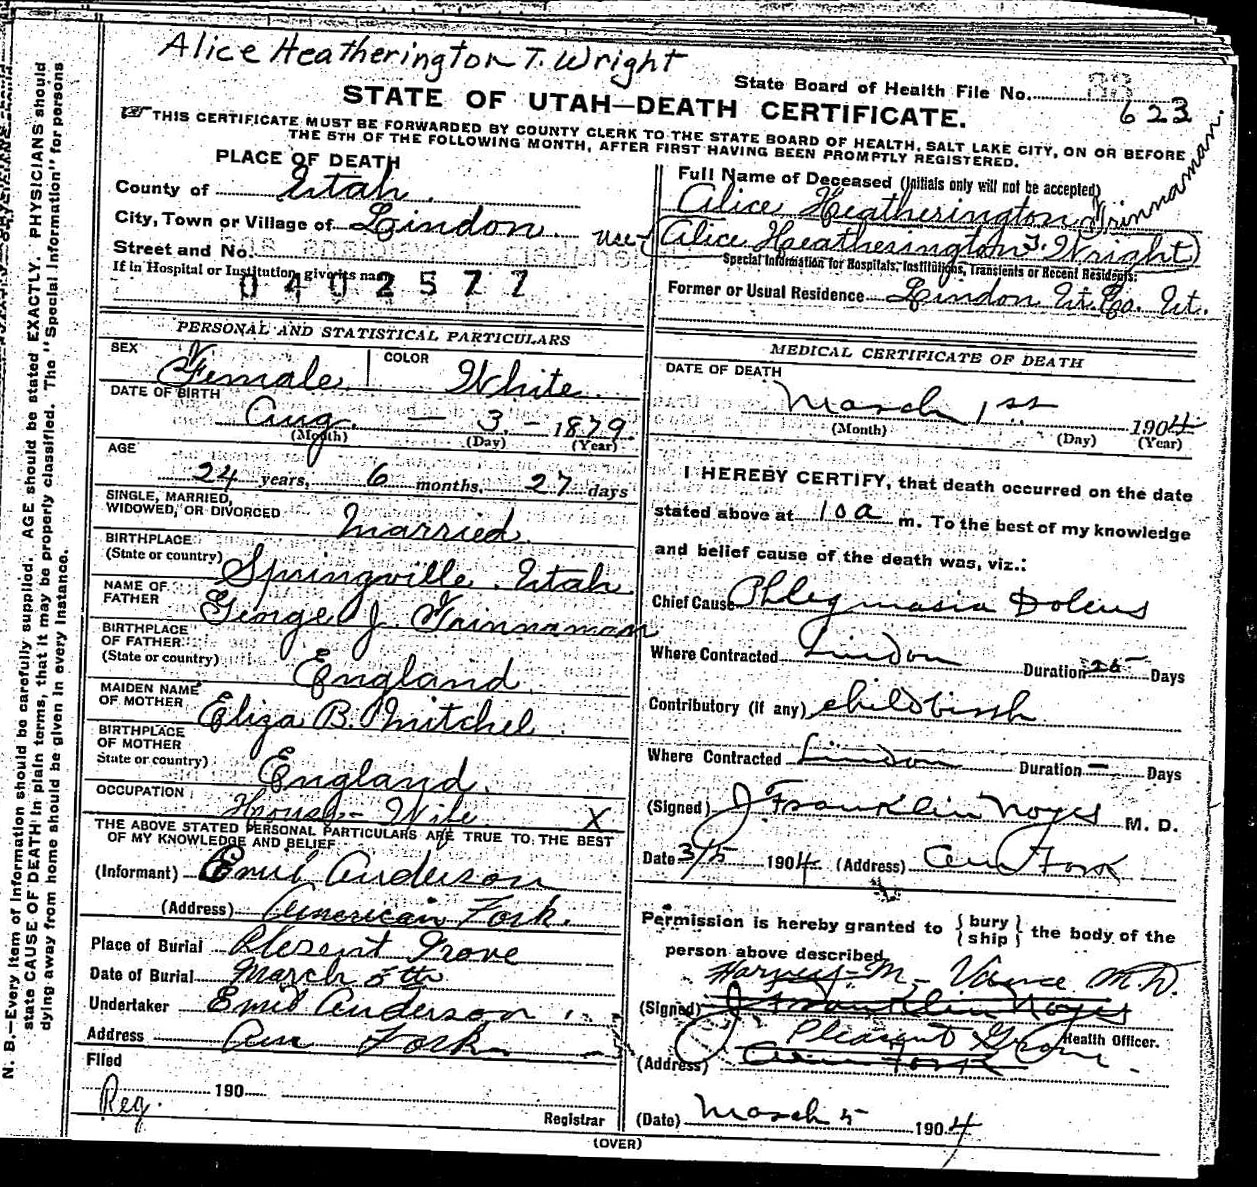 Alice Heatherington T. Wright
State Board of Health File No.
623
STATE OF UTAH—DEATH CERTIFICATE.
THIS CERTIFICATE MUST BE FORWARDED BY COUNTY CLERK TO THE STATE BOARD OF HEALTH, SALT LAKE CITY, ON OR BEFORE
THE 5TH OF THE FOLLOWING MONTH, AFTER FIRST HAVING BEEN PROMPTLY REGISTERED.
PLACE OF DEATH
County of Utah.
City, Town or Village of Lindon
Street and No.
If in Hospital or Institution, give its name
0402577
Full Name of Deceased (Initials only will not be accepted)
Alice Heatherington Trinnaman.
use (Alice Heatherington T. Wright)
Special Information for Hospitals, Institutions, Transients or Recent Residents:
Former or Usual Residence Lindon Ut. Co. Ut.
PERSONAL AND STATISTICAL PARTICULARS
SEX Female
COLOR White
DATE OF BIRTH
Aug. — 3 — 1879
(Month) (Day) (Year)
AGE
24 years, 6 months, 27 days
SINGLE, MARRIED,
WIDOWED, OR DIVORCED Married.
BIRTHPLACE
(State or country) Springville, Utah
NAME OF
FATHER George J. Trinnaman
BIRTHPLACE
OF FATHER
(State or country) England
MAIDEN NAME
OF MOTHER Eliza B. Mitchel
BIRTHPLACE
OF MOTHER
State or country) England.
OCCUPATION House-Wife X
THE ABOVE STATED PERSONAL PARTICULARS ARE TRUE TO THE BEST
OF MY KNOWLEDGE AND BELIEF
(Informant) Emil Anderson
(Address) American Fork.
Place of Burial Plesent Grove
Date of Burial March 5th
Undertaker Emil Anderson
Address Am Fork
Filed
190
Reg. Registrar
MEDICAL CERTIFICATE OF DEATH
DATE OF DEATH
March 1st 1904
(Month) (Day) (Year)
I HEREBY CERTIFY, that death occurred on the date
stated above at 10 a m. To the best of my knowledge
and belief cause of the death was, viz.:
Chief Cause Phlegmasia Dolens
Where Contracted Lindon Duration 25 Days
Contributory (if any) childbirth
Where Contracted Lindon Duration — Days
(Signed) J Franklin Noyes M. D.
Date 3/5 1904 (Address) Am Fork
Permission is hereby granted to { bury ship } the body of the
person above described
Harvey M. M.D.
(Signed) J Franklin Noyes
Pleasant Grove Health Officer.
(Address) Am Fork
(Date) March 5 1904
(OVER)
N. B.—Every item of information should be carefully supplied. AGE should be stated EXACTLY. PHYSICIANS should
state CAUSE OF DEATH in plain terms, that it may be properly classified. The "Special Information" for persons
dying away from home should be given in every instance.